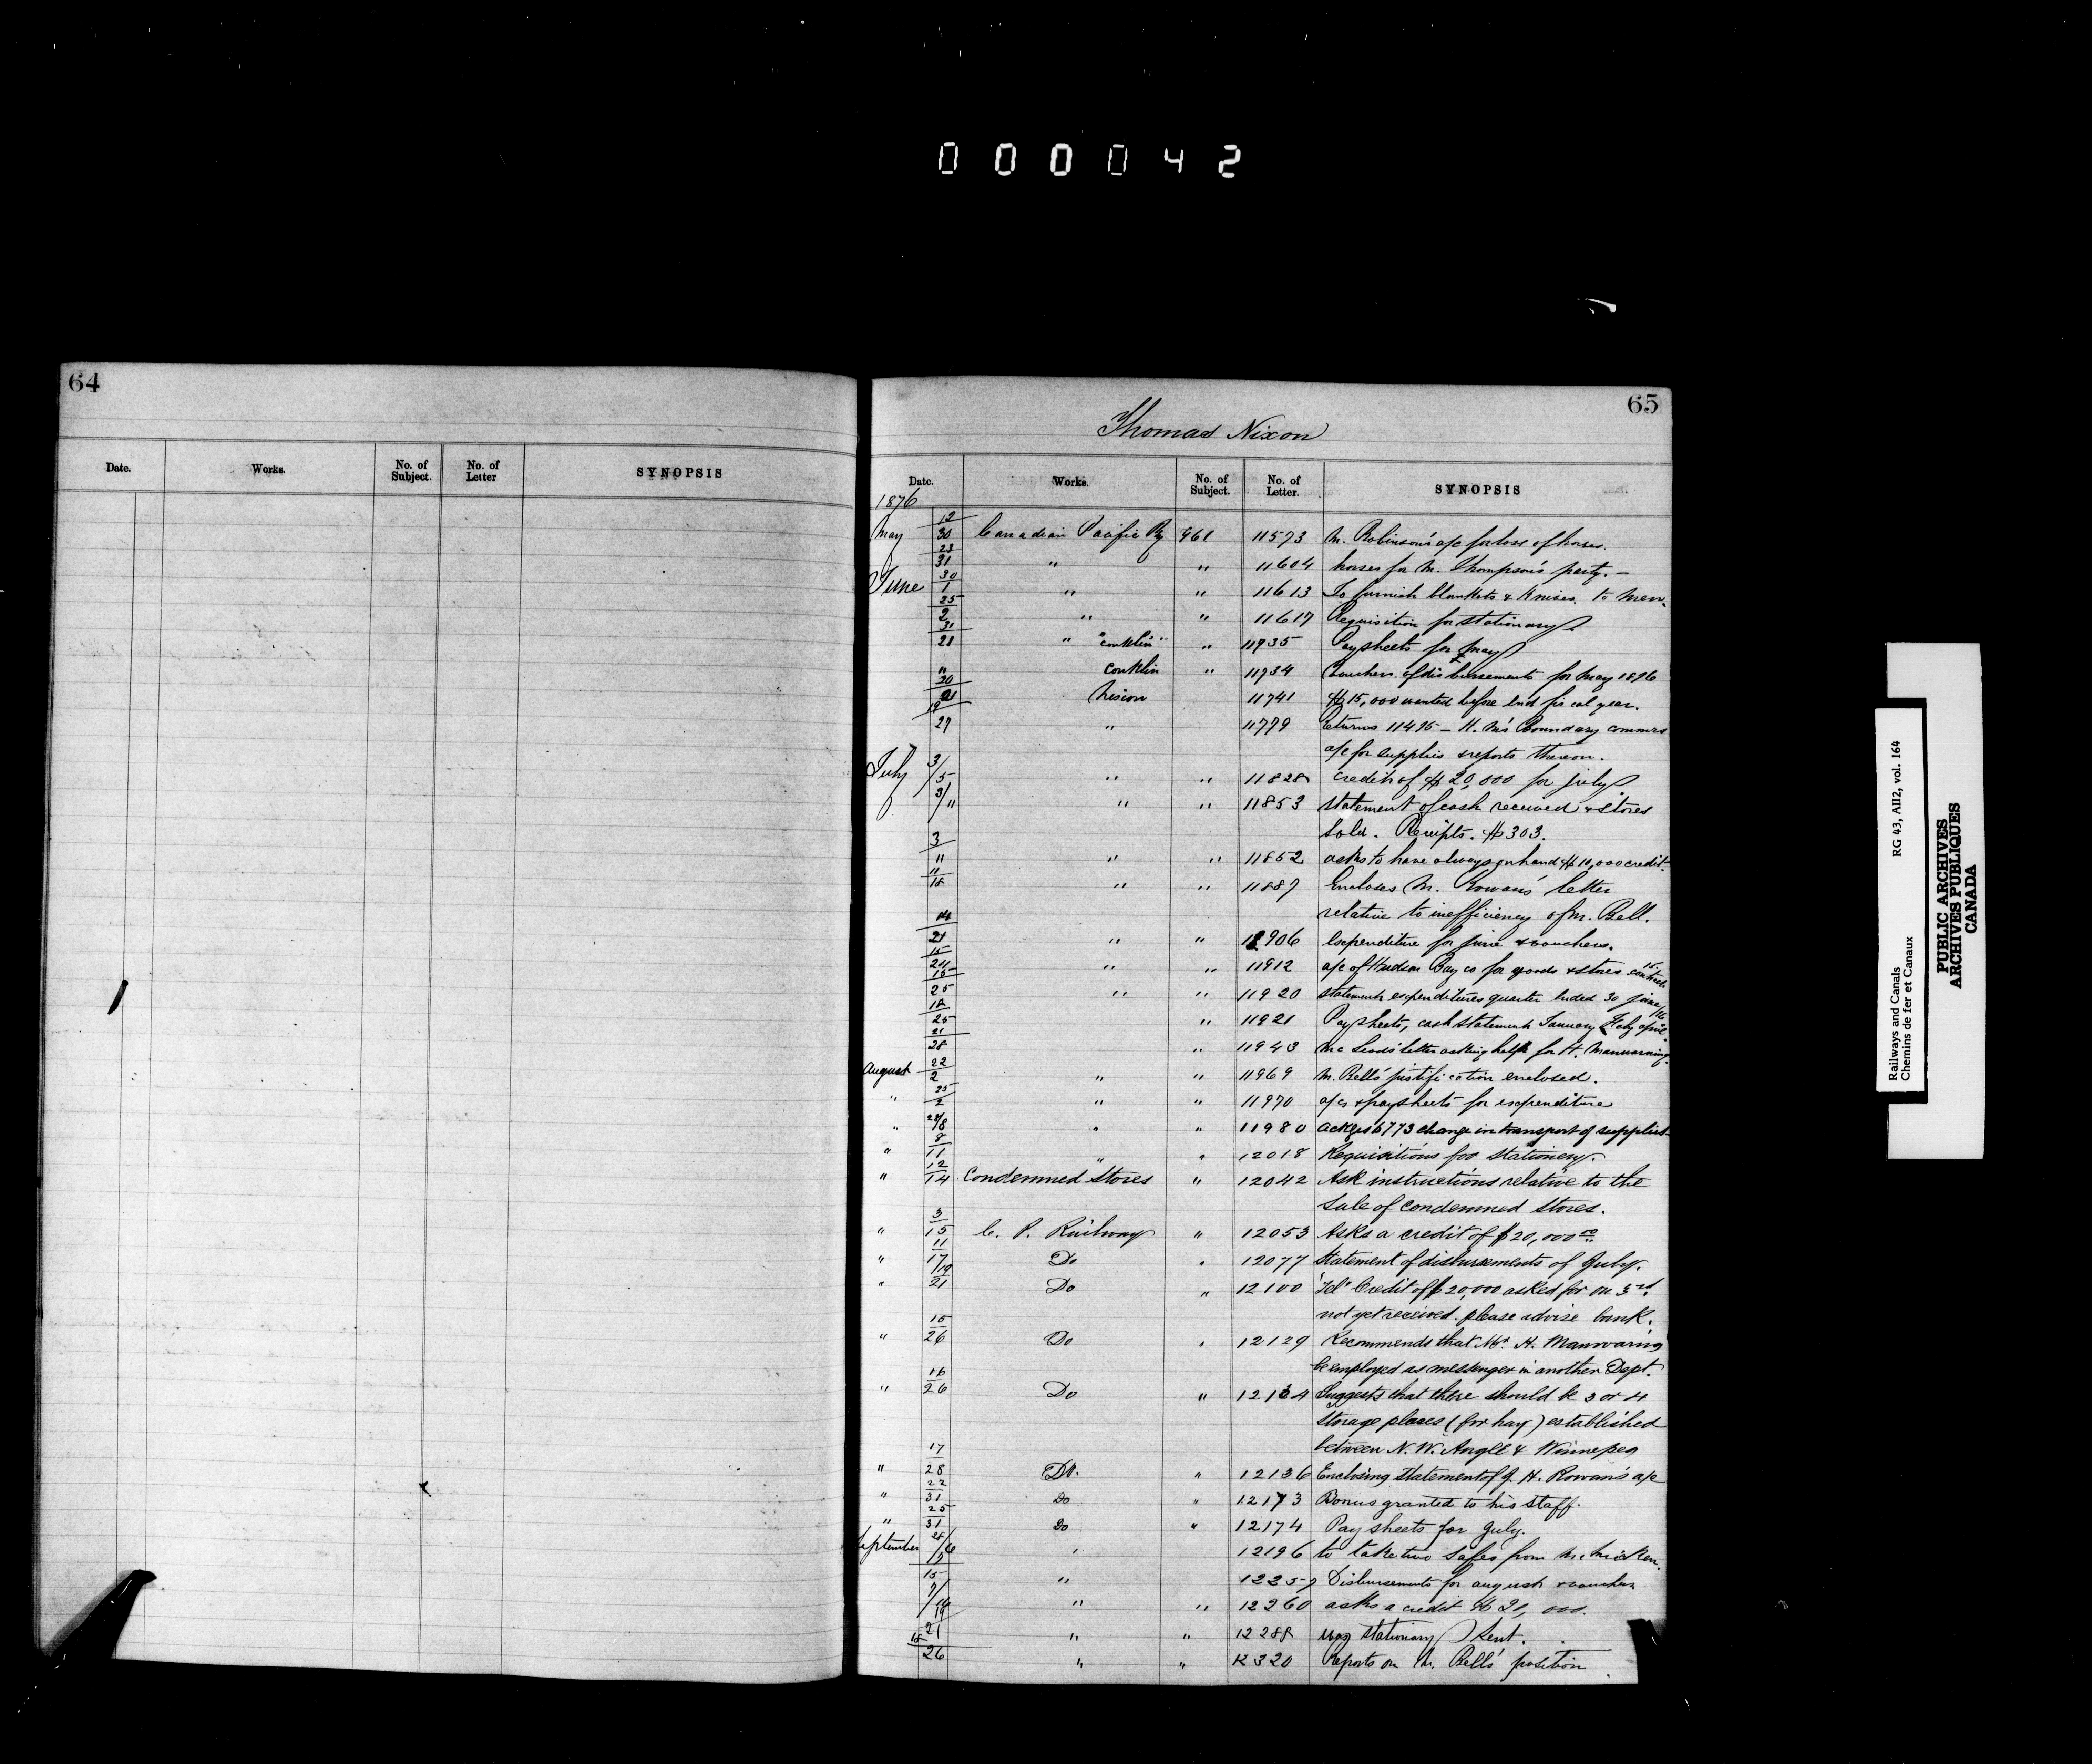 000042
64
Date. Works. No. of Subject. No. of Letter SYNOPSIS
65
Thomas Nixon
Date. Works. No. of Subject. No. of Letter. SYNOPSIS
1876
May 12/30 Canadian Pacific Ry 961 11573 Mr. Robinson's a/c for loss of horses.
23/31 " " 11604 horses for Mr. Thompson's party. —
June 30/1 " " 11613 To furnish blankets & knives to men.
25/2 " " 11617 Requisition for stationary
31/21 " "Conklin" " 11735 Paysheets for May
" Conklin " 11734 Vouchers of disbursements for May 1876
20/21 Nixon 11741 $15,000 wanted before end fiscal year.
19/27 " 11779 Returns 11495 — H. M's Boundary commrs
a/c for supplies & reports thereon.
July 3/5 " " 11828 credit of $20,000 for July
3/11 " " 11853 statement of cash received & stores
sold. Receipts. $303.
3/11 " " 11852 asks to have always on hand $10,000 credit.
11/18 " " 11887 Encloses Mr. Rowan's letter
relative to inefficiency of Mr. Bell.
14/21 " " 11906 Expenditure for June & vouchers.
15/24 " " 11912 a/c of Hudson Bay co for goods & stores 15 contract
15/25 " " 11920 statements expenditures quarter ended 30 June
18/25 " 11921 Paysheets, cash statement January Feby april
21/28 " 11943 letter asking help for H. Manwarning.
August 22/2 " " 11969 Mr. Bell's justification enclosed.
" 25/2 " " 11970 a/cs & paysheets for expenditure
" 28/8 " " 11980 change in transport of supplies
" 8/11 " " 12018 Requisitions for Stationery.
" 12/14 Condemned Stores " 12042 Ask instructions relative to the
Sale of condemned stores.
" 3/15 C. P. Railway " 12053 Asks a credit of $20,000 00
" 11/17 Do " 12077 Statement of disbursements of July.
" 19/21 Do " 12100 "Tel" Credit of $20,000 asked for on 3rd.
not yet received. please advise bank.
" 15/26 Do " 12129 Recommends that Mr. H. Manwaring
be employed as messenger in another Dept.
" 16/26 Do " 12134 Suggests that there should be 3 or 4
storage places (for hay) established
between N. W. Angle & Winnepeg
" 17/28 Do. " 12136 Enclosing statement of J. H. Rowan's a/c
" 22/31 Do " 12173 Bonus granted to his staff.
" 25/31 Do " 12174 Pay sheets for July.
September 28/6 " 12196 to take two safes from
15 " 12257 Disbursements for august & vouchers
7/16 " " 12260 asks a credit $20,000.
19/21 " " 12288 stationary sent.
18/26 " " 12320 Reports on Mr. Bell's position
Railways and Canals RG 43, AII2, vol. 164
Chemins de fer et Canaux
PUBLIC ARCHIVES
ARCHIVES PUBLIQUES
CANADA